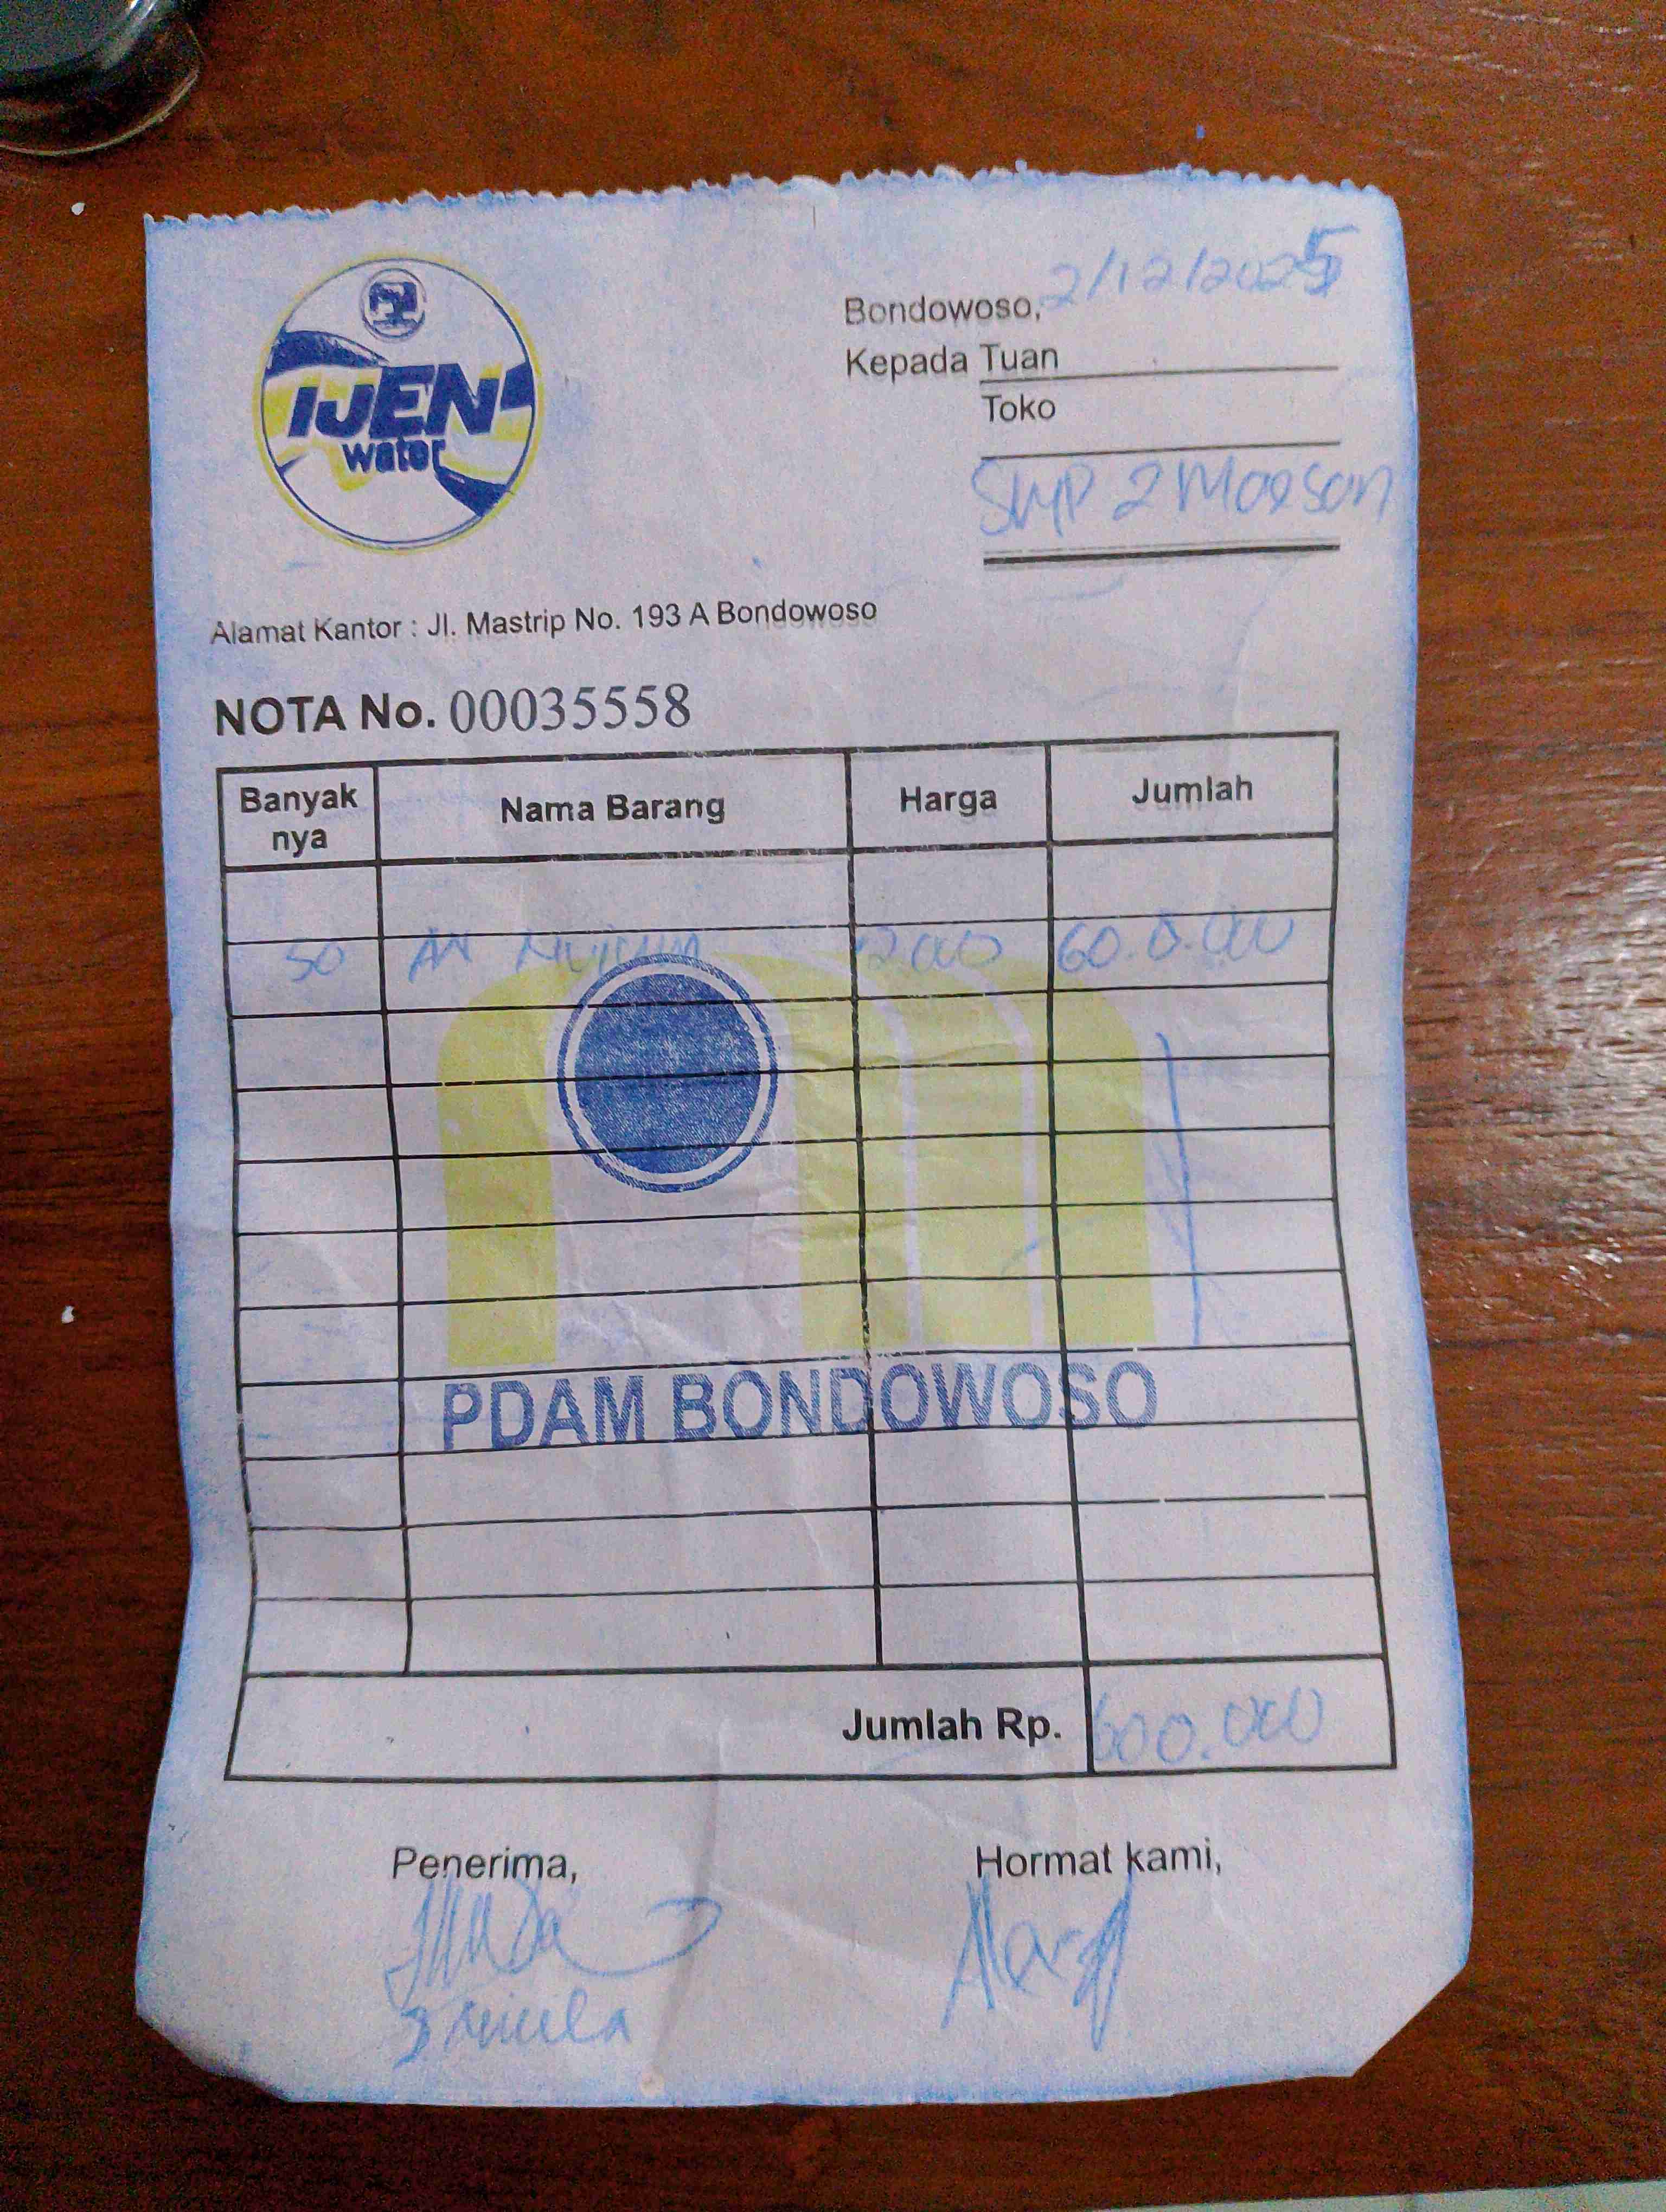 IJEN
water
Bondowoso, 2/12/2025
Kepada Tuan
Toko
SMP 2 Maesan
Alamat Kantor : Jl. Mastrip No. 193 A Bondowoso
NOTA No. 00035558
Banyak nya Nama Barang Harga Jumlah
50 12000 600.000
PDAM BONDOWOSO
Jumlah Rp. 600.000
Penerima, Hormat kami,